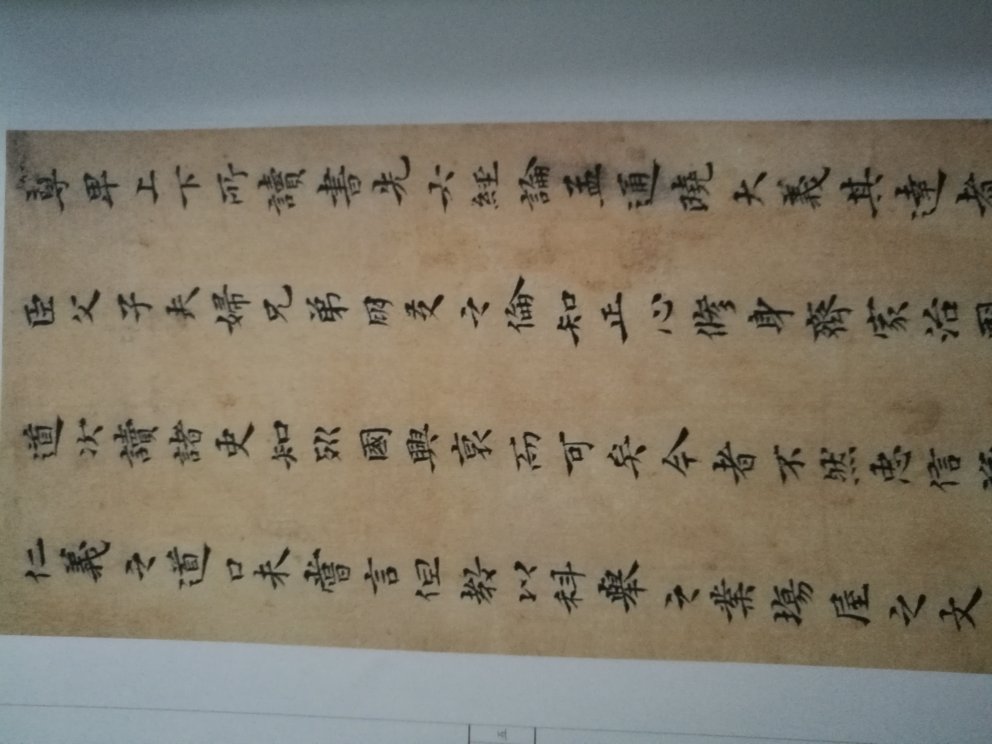 尊卑上下所讀書先六經論孟通曉大義其達者
臣父子夫婦兄弟朋友之倫知正心修身齊家治國
道次讀諸史知列國興衰而可矣今者不然忠信
仁義之道口未嘗言但教以科舉之業場屋之文
五